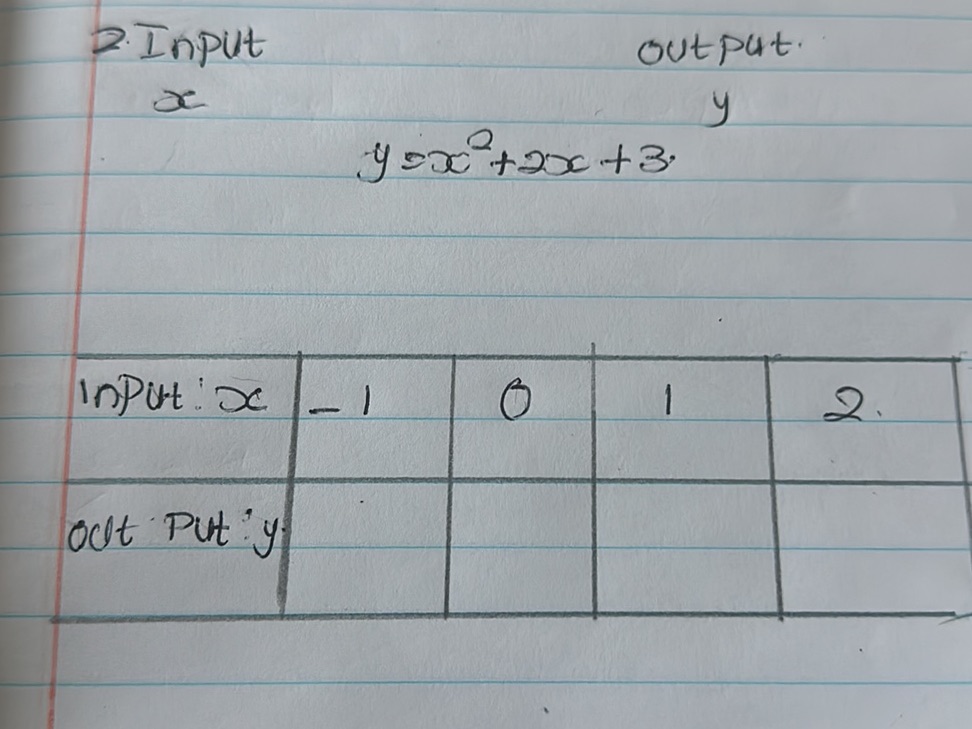 2. Input output.
x y
y=x²+2x+3.
Input: x -1 0 1 2.
out put: y